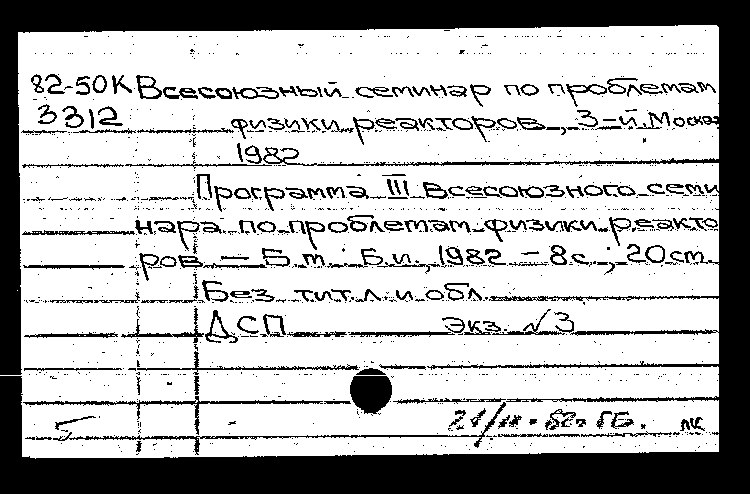 82-50К Всесоюзный семинар по проблемам
3312 физики реакторов, 3-й. Москва
1982
Программа III Всесоюзного семи
нара по проблемам физики реакто
ров — Б.м. : Б.и., 1982 - 8с ; 20см.
Без тит.л. и обл.
ДСП Экз. №3
5 ГБ. ПК